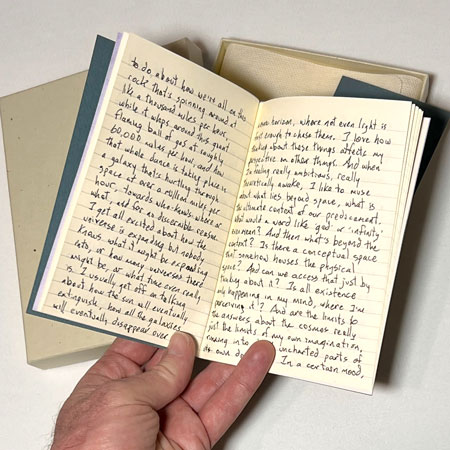 to do, about how we're all on this
rock that's spinning around at
like a thousand miles per hour
while it whips around this giant
flaming ball of gas at roughly
60,000 miles per hour, and how
that whole dance is taking place in
a galaxy that's hurtling through
space at over a million miles per
hour, towards who-knows-where or
what, and for no discernible reason.
I get all excited about how the
universe is expanding but nobody
knows what it might be expanding
into, or how many universes there
might be, or what time even really
is. I usually get off on talking
about how the sun will eventually
extinguish, how all the galaxies
will eventually disappear over
some horizon, where not even light is
fast enough to chase them. I love how
talking about these things affects my
perspective on other things. And when
I'm feeling really ambitious, really
theoretically awake, I like to muse
about what lies beyond space, what is
the ultimate context of our predicament.
What would a word like 'god' or 'infinity'
even mean? And then what's beyond the
context? Is there a conceptual space
that somehow houses the physical
space? And can we access that just by
thinking about it? Is all existence
only happening in my mind, where I'm
perceiving it? And are the limits to
the answers about the cosmos really
just the limits of my own imagination,
uncharted parts of
In a certain mood,